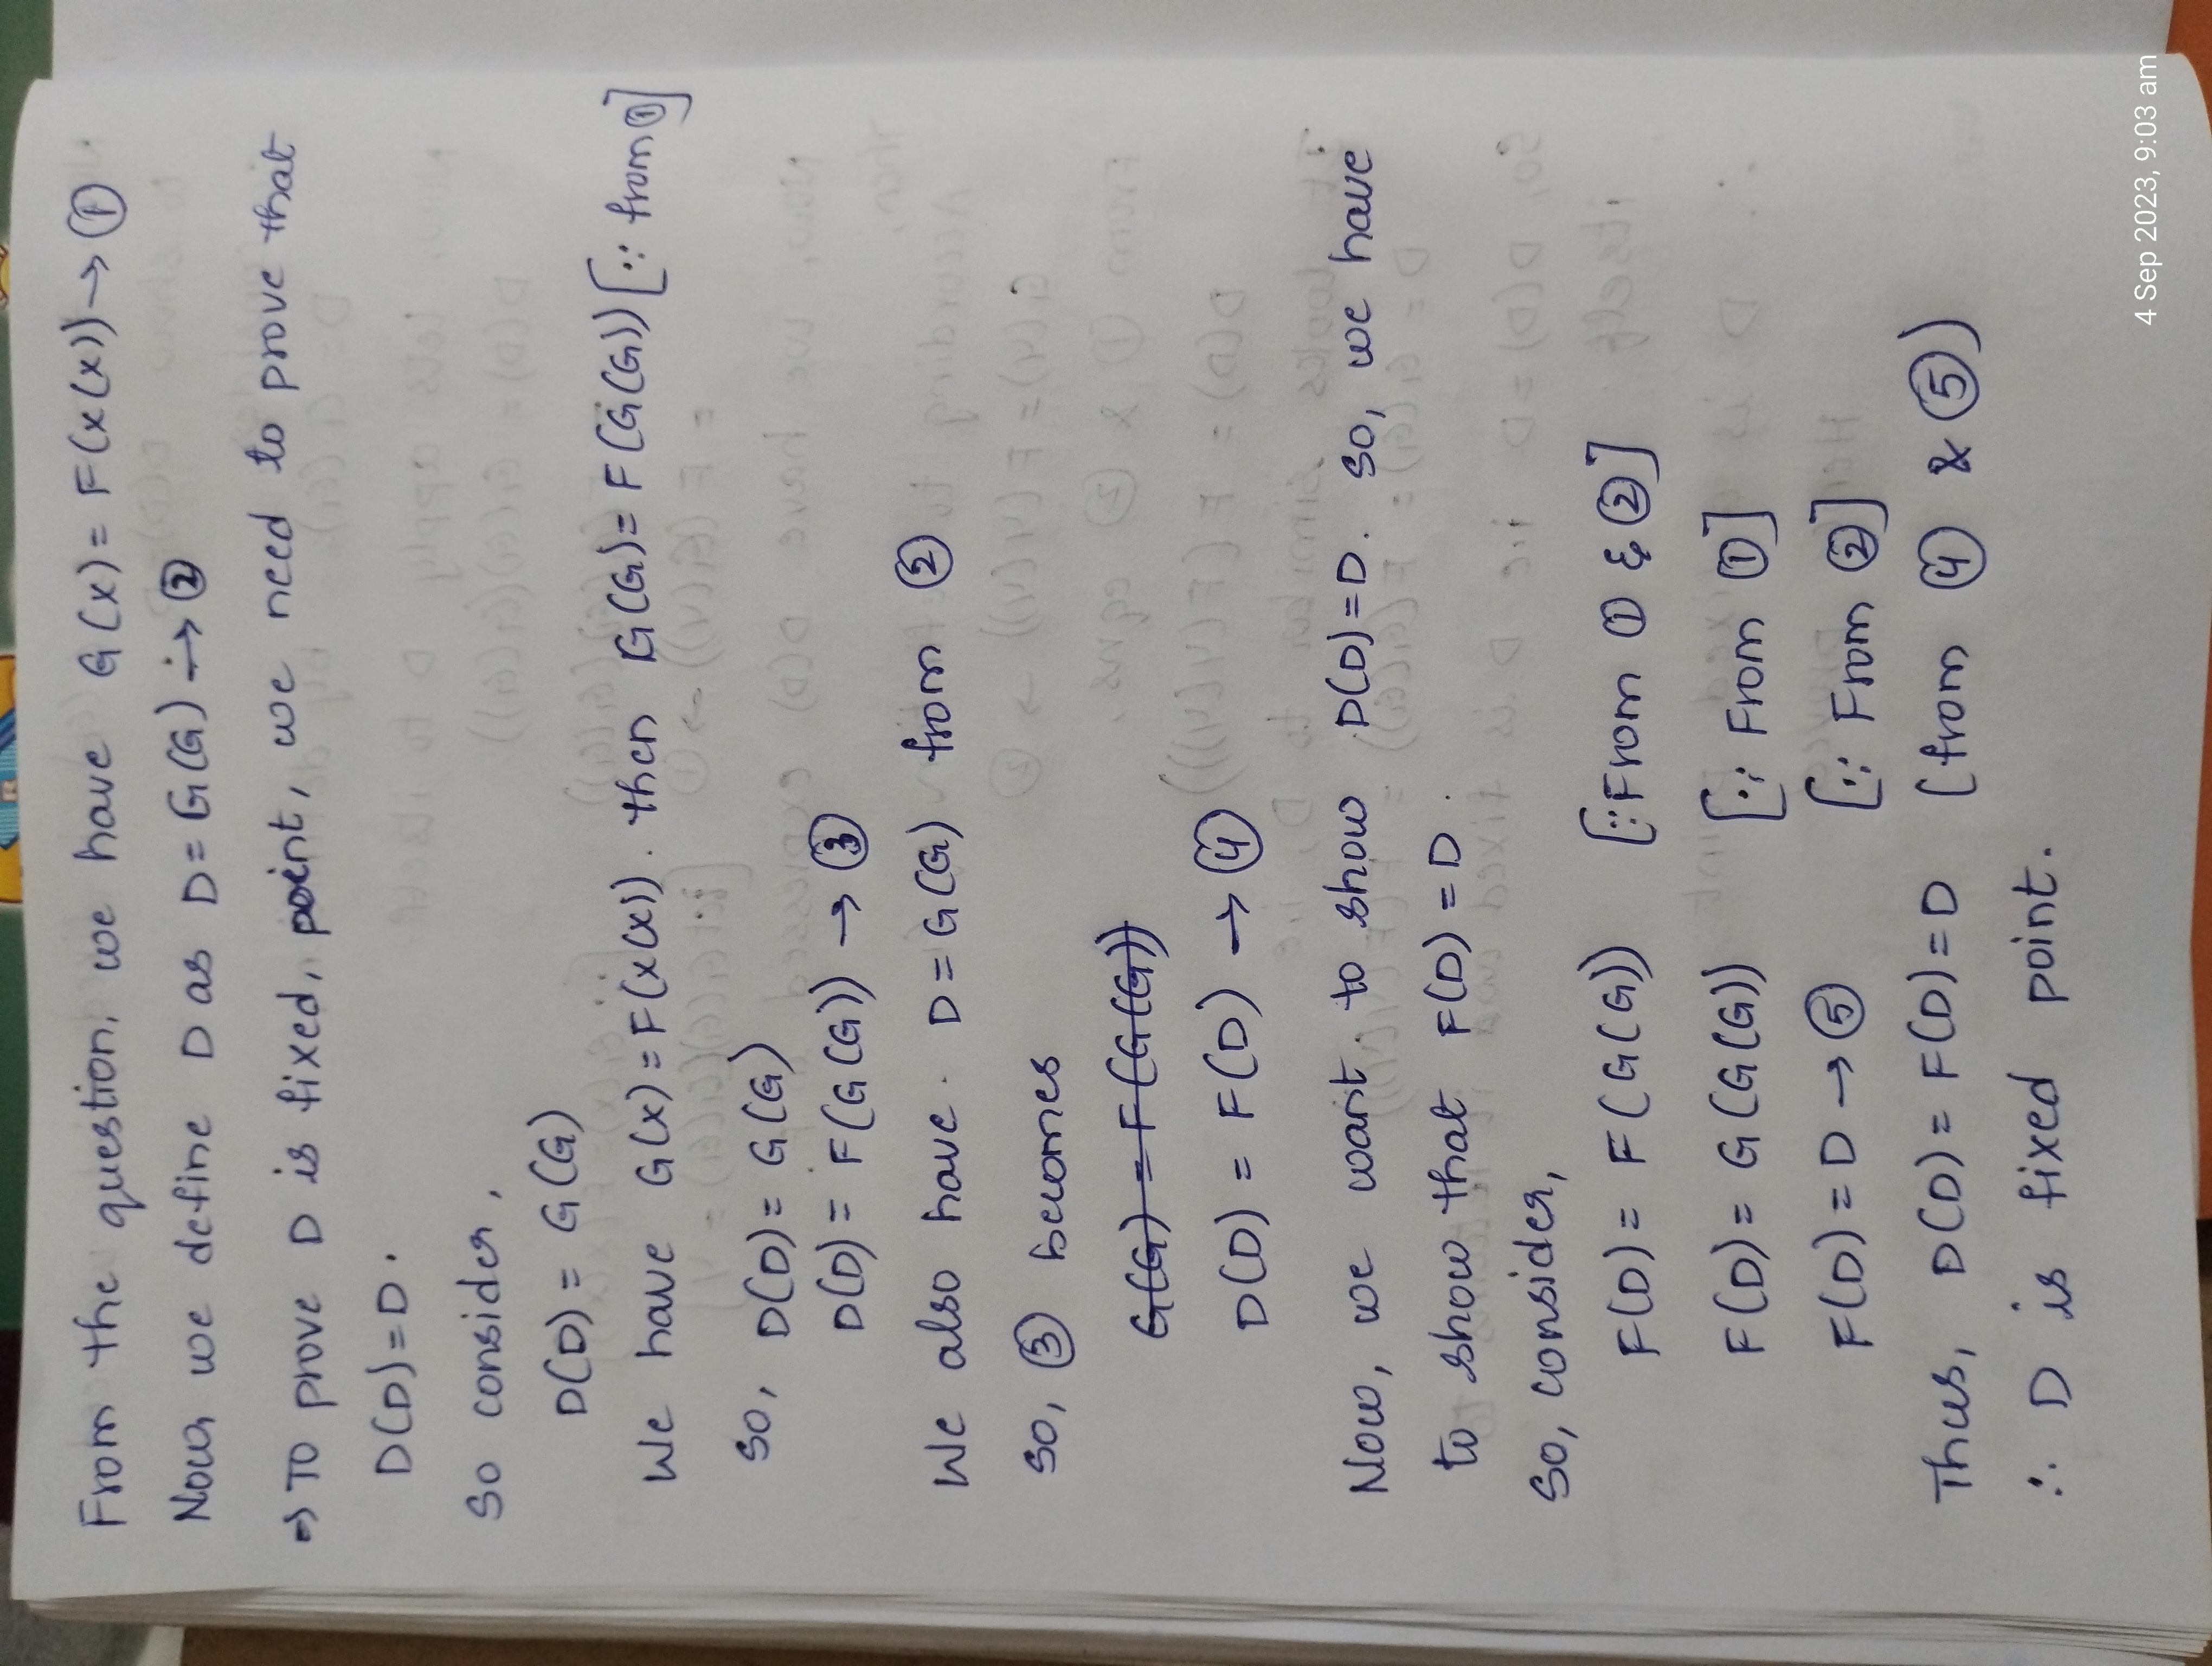 From the question, we have G(x) = F(x(x)) → ①
Now we define D as D = G(G) → ②
⇒ To prove D is fixed, point, we need to prove that
D(D) = D.
So consider,
D(D) = G(G)
We have G(x) = F(x(x)). then G(G) = F(G(G)) [∵ from ①]
So, D(D) = G(G)
D(D) = F(G(G)) → ③
We also have. D = G(G) from ②
So, ③ becomes
G(G) = F(G(G))
D(D) = F(D) → ④
Now, we want to show D(D) = D. So, we have
to show that F(D) = D.
So, consider,
F(D) = F(G(G)) [∵ From ① & ②]
F(D) = G(G(G)) [∵ From ①]
F(D) = D → ⑤ [∵ From ②]
Thus, D(D) = F(D) = D (from ④ & ⑤)
∴ D is fixed point.
4 Sep 2023, 9:03 am